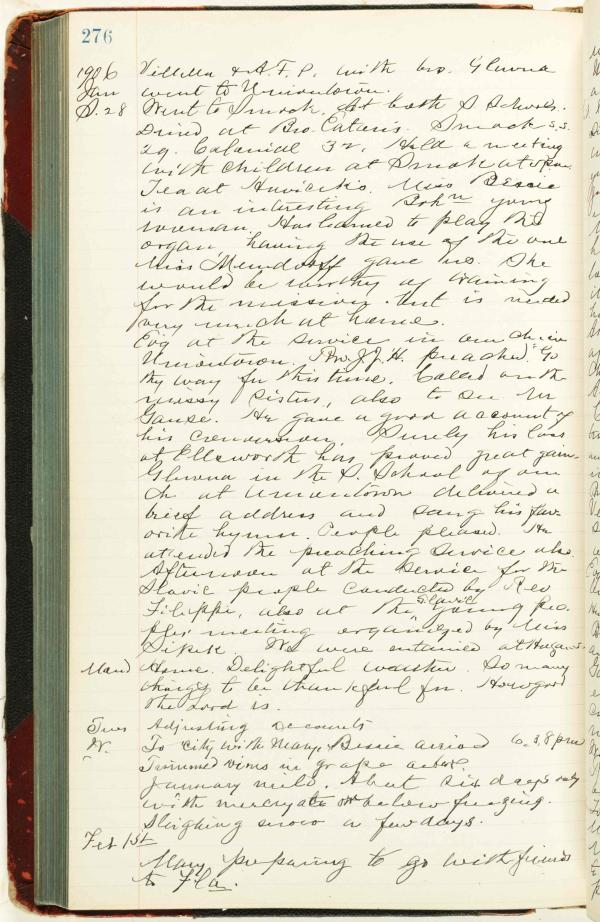 276
1906 Villilla & A. F. P. with bro. Glunna
Jan went to Uniontown.
S. 28 Went to Smock, at both S Schools.
Dined at Bro. Smock S.S.
29. Colonial 32. Held a meeting
with children at Smock at
Tea at Miss Bessie
is an interesting Bohn young
woman. Has learned to play the
organ, having the use of the one
Miss Mendorff gave us. She
would be worthy of training
for the mission, but is needed
very much at home.
Evg at the service in our ch in
Uniontown. Rev. J. J. H. preached. "Go
thy way for this time. Called on the
missy sisters, also to see Mr
Gause. He gave a good account of
his conversion. Surely his loss
at Ellsworth has proved great gain.
Glunna in the S. School of our
Ch at Uniontown delivered a
brief address and sang his fav
orite hymn. People pleased. He
attended the preaching service also.
Afternoon at the service for the
Slavic people conducted by Rev
Filippi, also at the Slavic young peo
ples meeting organized by Miss
We were entertained at
Mond Home. Delightful weather. So many
things to be thankful for. How good
the Lord is.
Tues Adjusting accounts
W. To city with Mary, Bessie arrived 6.38 pm
Trimmed vines in grape arbor.
January mild. About six days only
with mercury at or below freezing.
Sleighing snow a few days.
Feb 1st
Mary preparing to go with friends
to Fla.